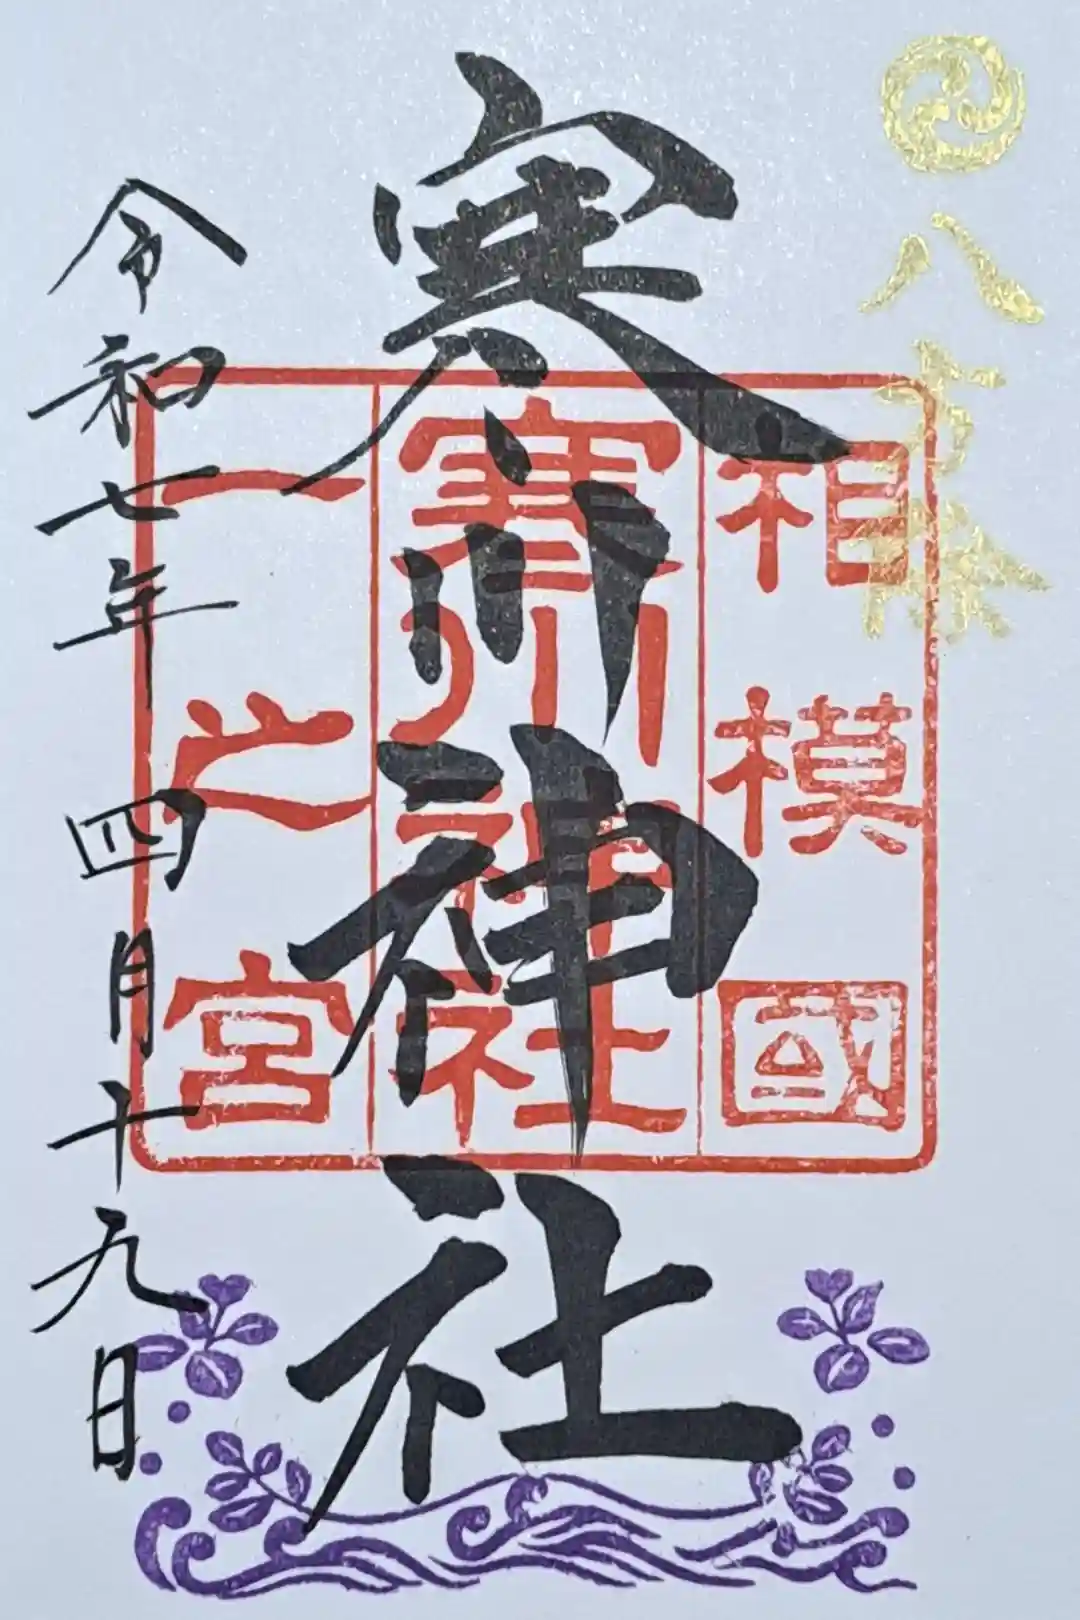 八方除
相模國
寒川神社
一之宮
寒川神社
令和七年四月十九日